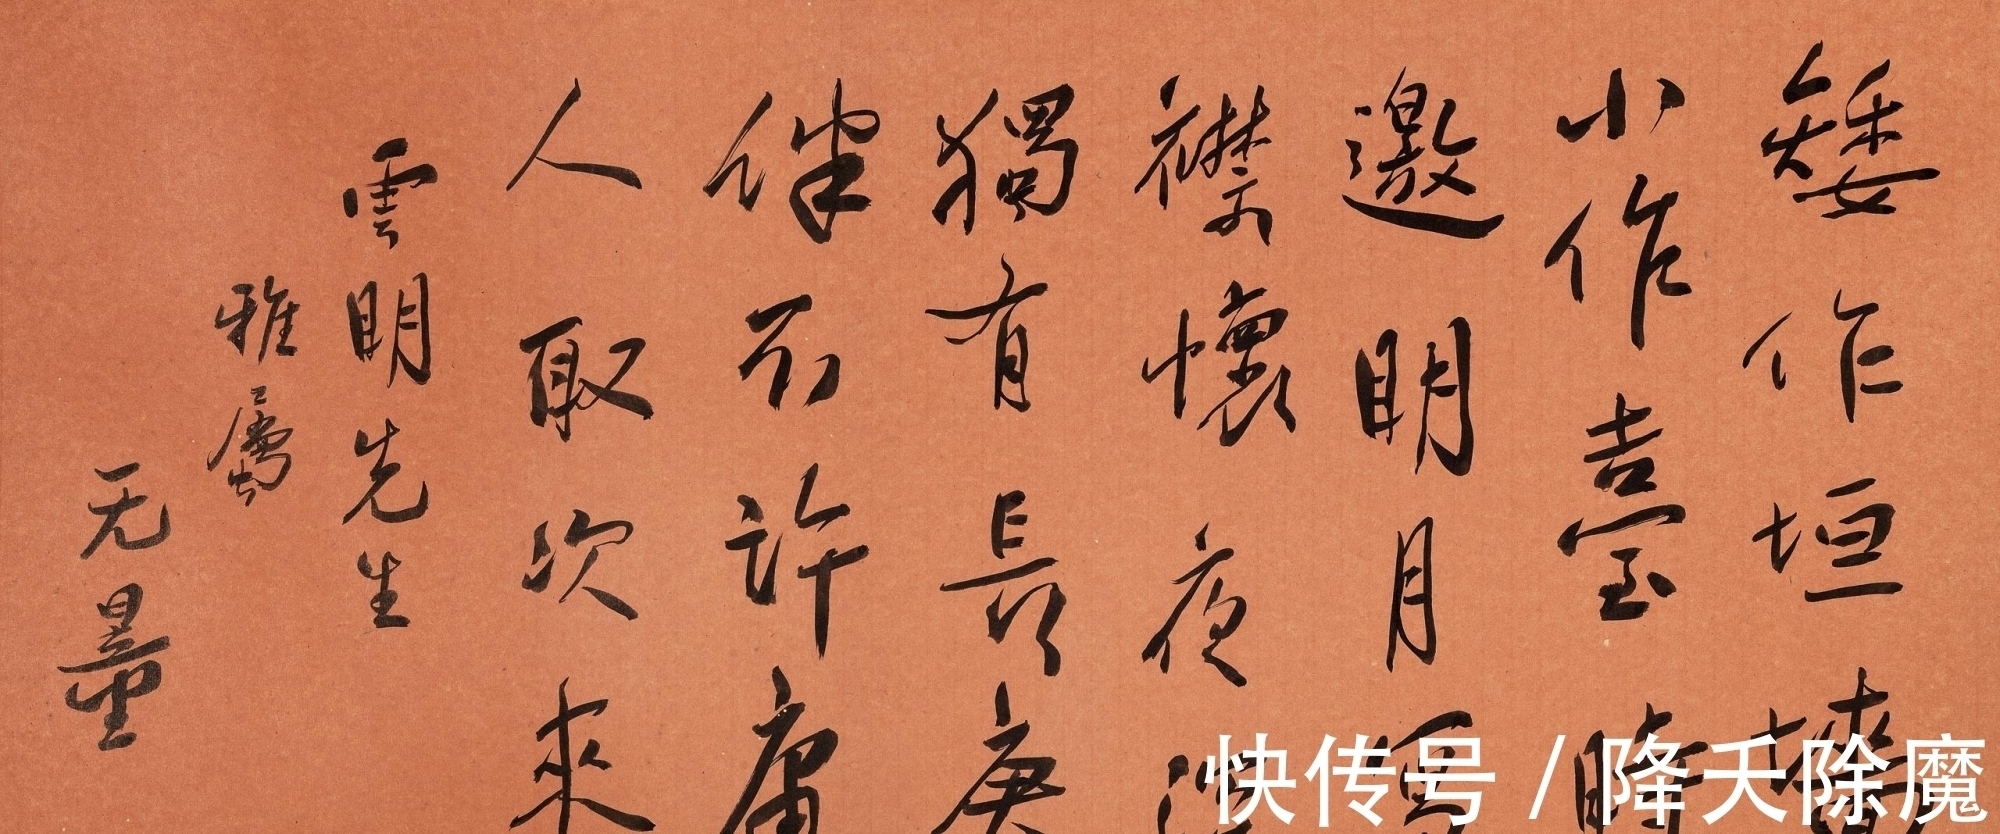 矮作垣墙
小作臺時
邀明月寫
襟懷夜深
獨有長庚
伴不許庸
人取次來
雲明先生
雅屬
无量
快传号 / 降夭除魔